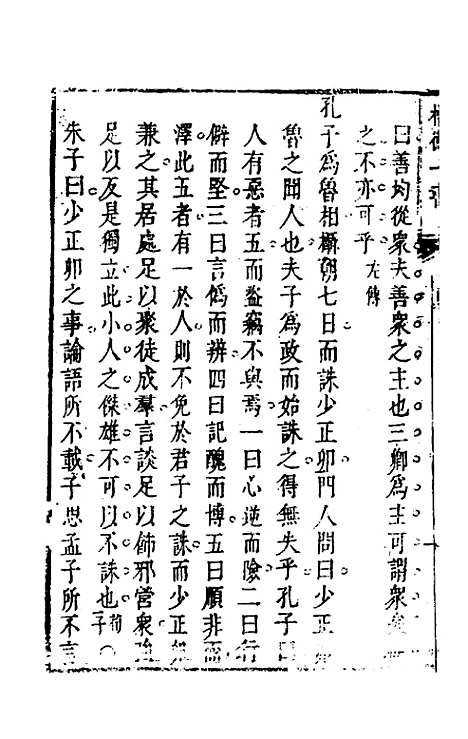 曰善均從衆夫善衆之主也三卿為主可謂衆矣
之不亦可乎 左傳
孔子為魯相攝朝七日而誅少正卯門人問曰少正
魯之聞人也夫子為政而始誅之得無失乎孔子曰
人有惡者五而盜竊不與焉一曰心逆而險二曰行
僻而堅三曰言偽而辨四曰記醜而博五曰順非而
澤此五者有一於人則不免於君子之誅而少正
兼之其居處足以聚徒成羣言談足以飾邪營衆強
足以反是獨立此小人之傑雄不可以不誅也 荀子 ○
朱子曰少正卯之事論語所不載子思孟子所不言